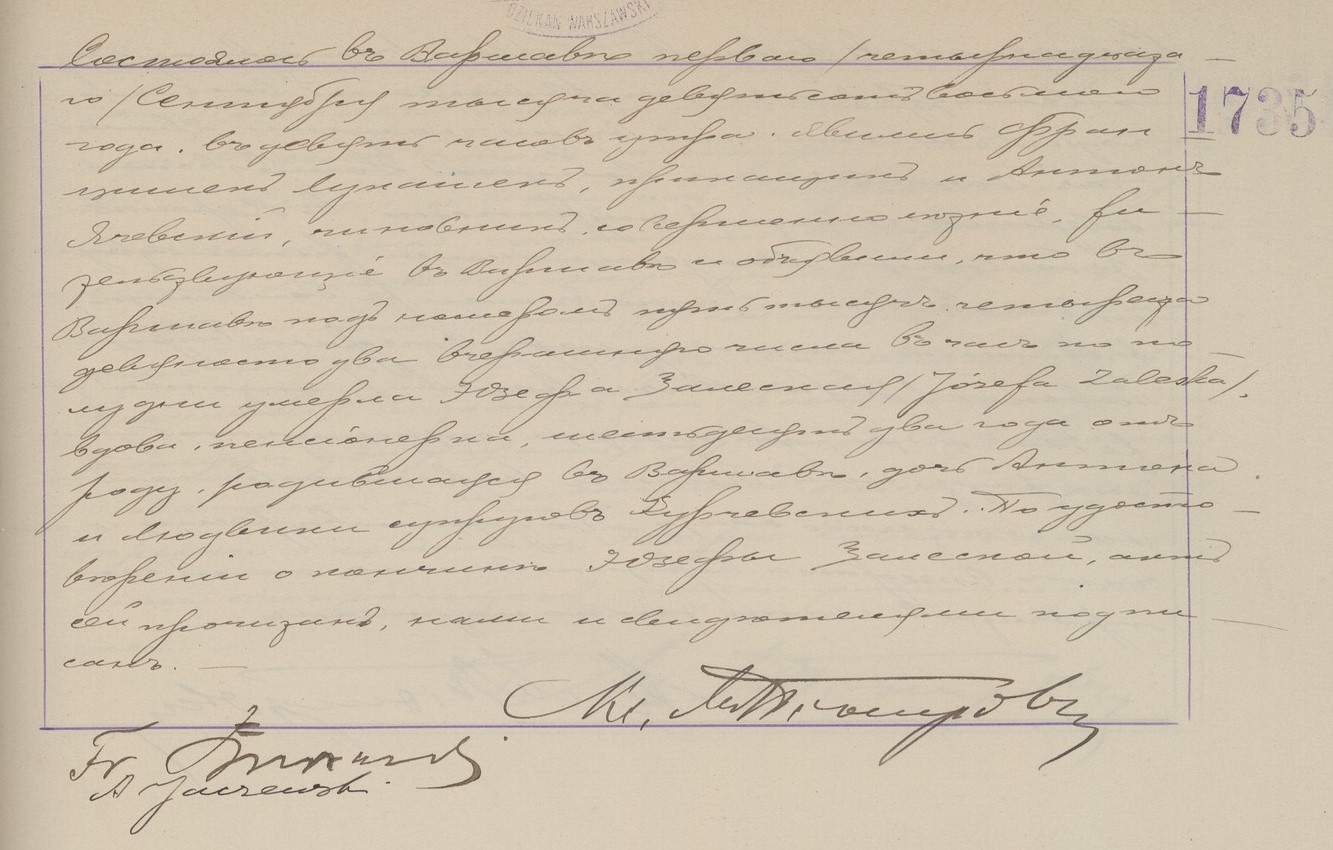 DZIEKAN WARSZAWSKI
1735
Состоялось въ Варшавѣ перваго /четырнадцата
го/ Сентября тысяча девятьсотъ восьмого
года, въ девять часовъ утра. Явились Фран
цишекъ Лукашекъ, прикащикъ и Антонъ
Ячевскій, чиновникъ, совершеннолѣтніе, жи
тельствующіе въ Варшавѣ и объявили, что въ
Варшавѣ подъ номеромъ пять тысячъ четыреста
девяносто два вчерашняго числа въ часъ по по
лудни умерла Юзефа Залеская /Józefa Zaleska/,
вдова, пенсіонерка, шестьдесятъ два года отъ
роду, родившаяся въ Варшавѣ, дочь Антона
и Людвики супруговъ Курчевскихъ. По удосто
вѣреніи о кончинѣ Юзефы Залеской, актъ
сей прочитанъ, нами и свидѣтелями подпи
санъ.
Кс.
Fr
A Jaczewski